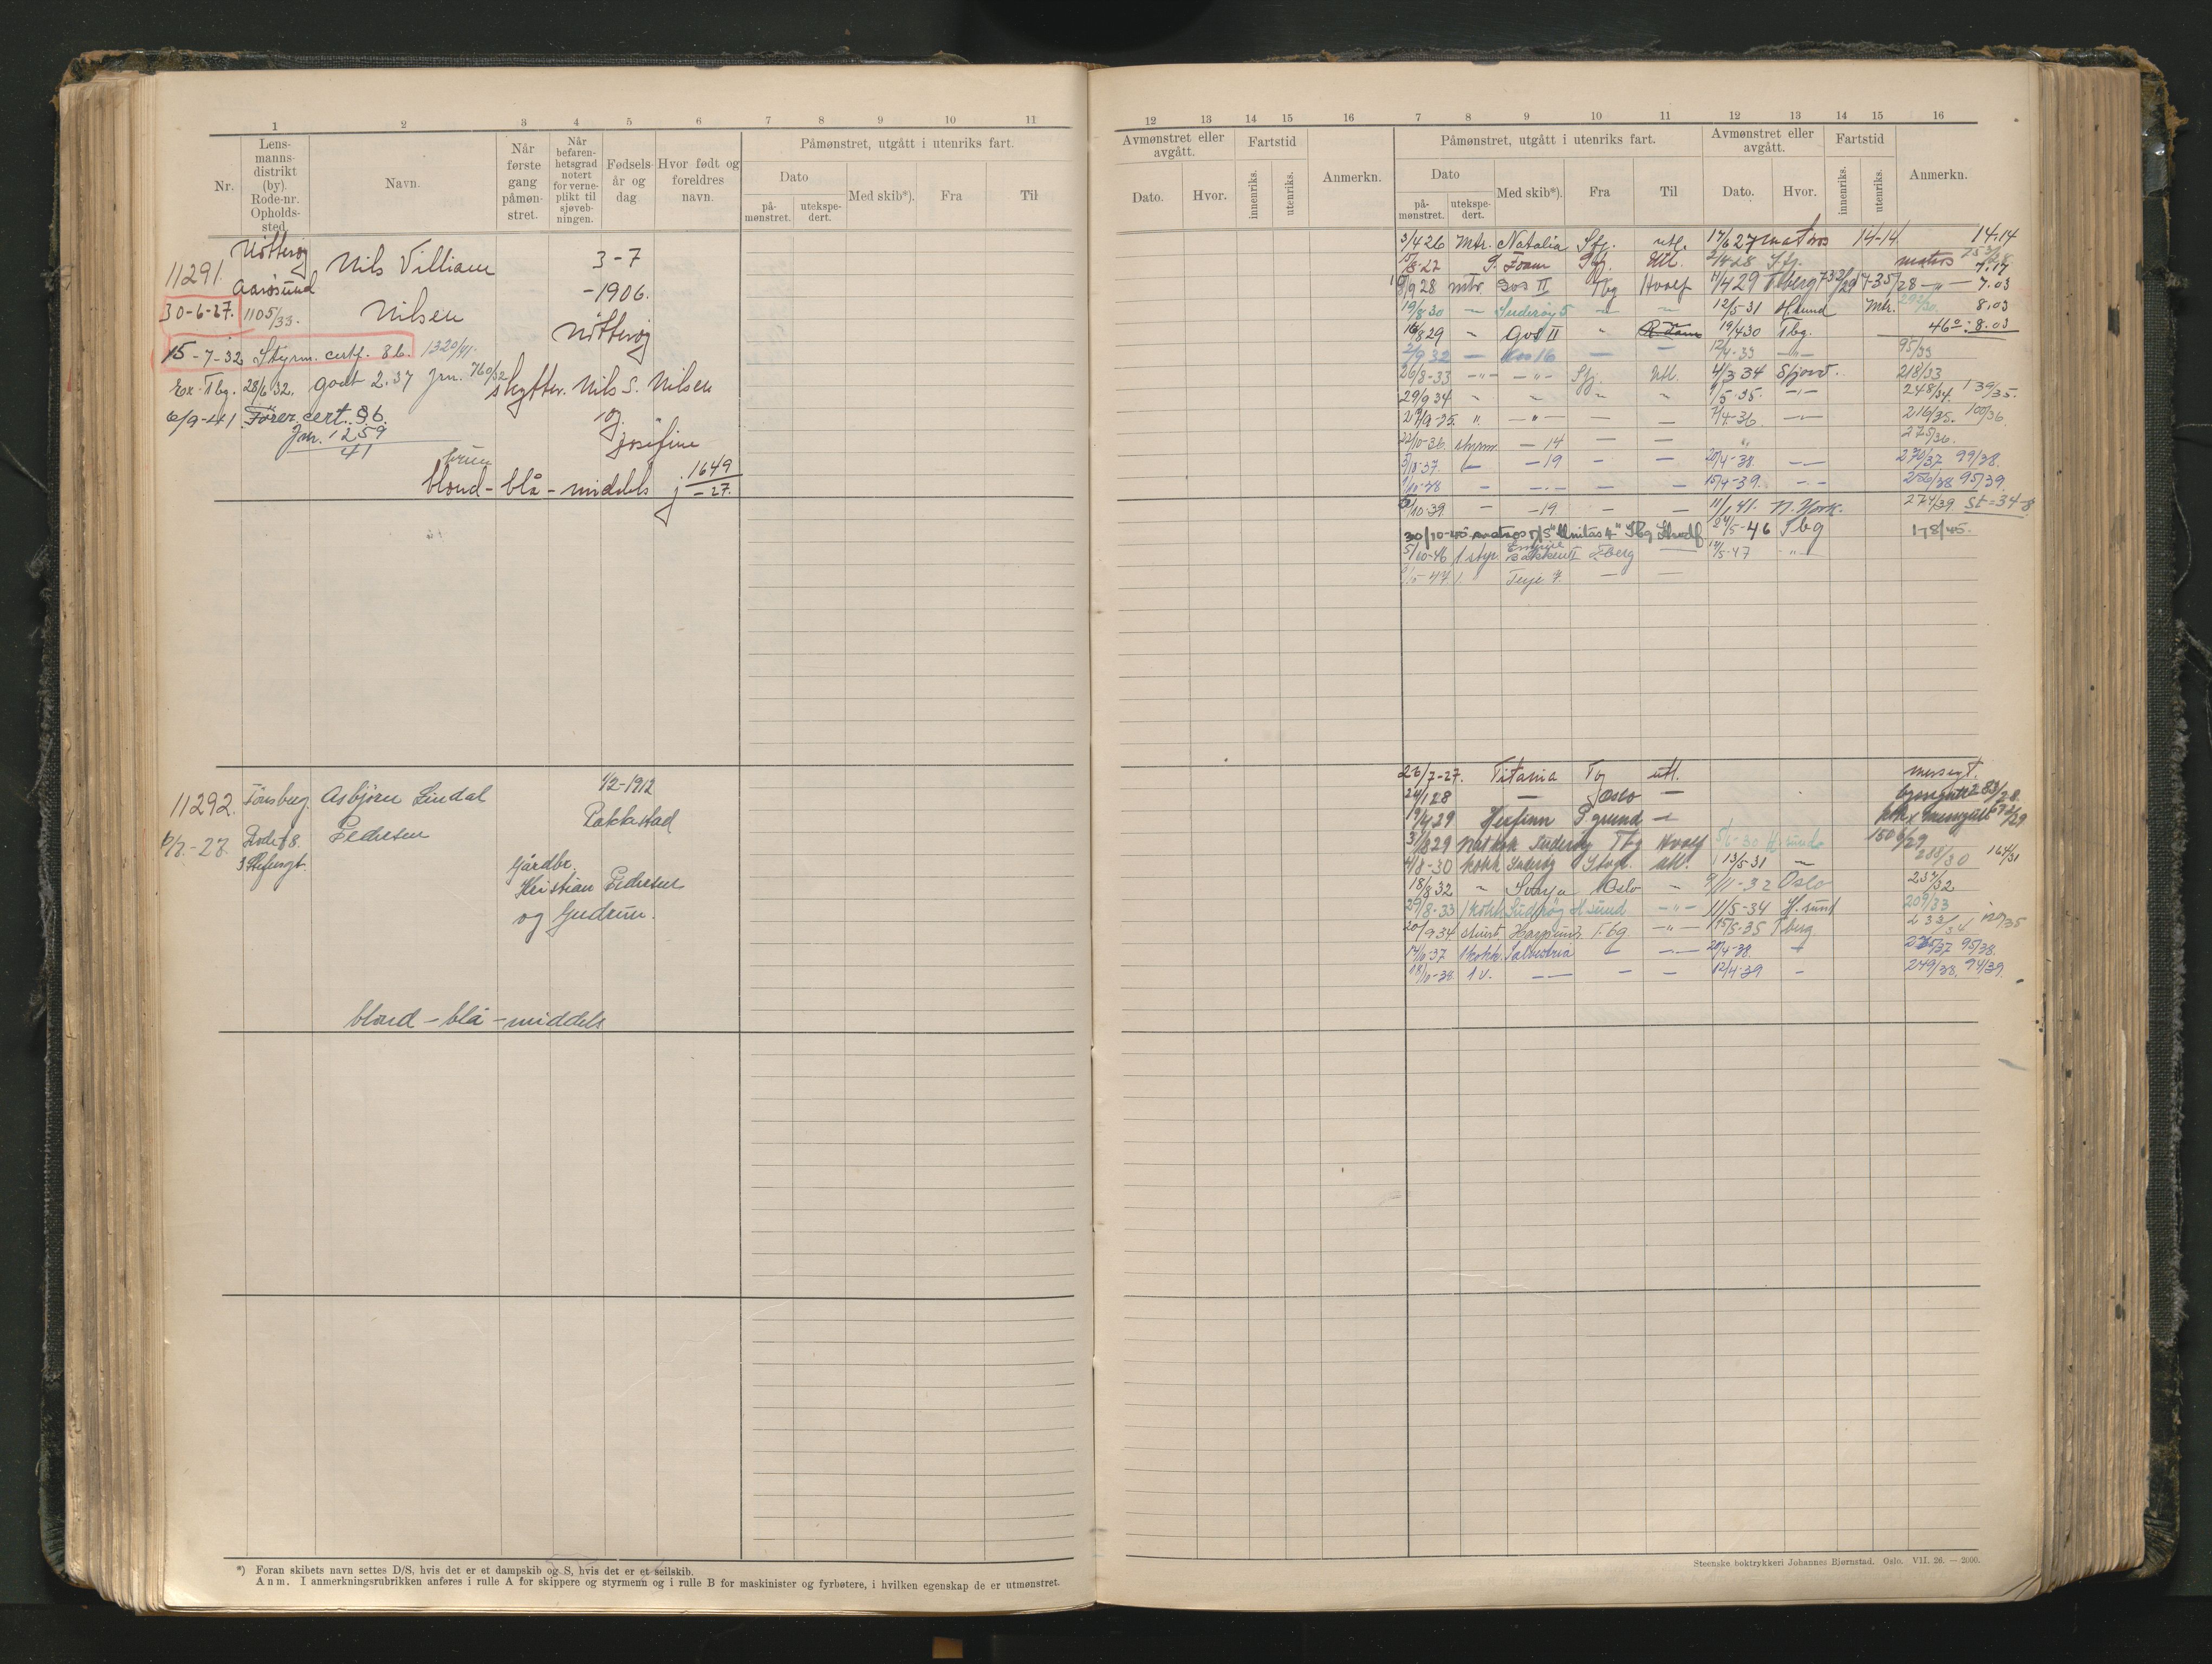 1 2 3 4 5 6 7 8 9 10 11
Nr. Lens-manns-distrikt (by). Rode-nr. Opholds-sted. Navn. Når første gang påmøn-stret. Når befaren-hetsgrad notert for verne-plikt til sjøveb-ningen. Fødsels-år og dag. Hvor født og foreldres navn. Påmønstret, utgått i utenriks fart.
Dato Med skib*). Fra Til
på-mønstret. utekspe-dert.
Nøtterøy
11291. Nils Villiam 3-7
Aarøsund -1906.
30-6-27. 1105/33. Nilsen
Nøtterøy
15-7-32 Styrm. certf. 86. 1320/41.
Ex. Tbg. 28/6 32. godt 2.37 Jrn. 760/32 skytter. Nils S. Nilsen
6/9-41 Fører cert. 86. og
Jrn. 1259 Josefine
41
brun 1649
blond - blå - middels j -27.
11292. Tønsberg. Asbjørn Lindal 1/2-1912
Pedersen Rakkestad
Rode 18.
Gårdbr.
Kristian Pedersen
og Gudrun.
blond - blå - middels
*) Foran skibets navn settes D/S, hvis det er et dampskib og S, hvis det er et seilskib.
Anm. I anmerkningsrubrikken anføres i rulle A for skippere og styrmenn og i rulle B for maskinister og fyrbøtere, i hvilken egenskap de er utmønstret.
12 13 14 15 16 7 8 9 10 11 12 13 14 15 16
Avmønstret eller avgått. Fartstid Anmerkn. Påmønstret, utgått i utenriks fart. Avmønstret eller avgått. Fartstid Anmerkn.
Dato. Hvor. innenriks. utenriks. Dato Med skib*). Fra Til Dato. Hvor. innenriks. utenriks.
på-mønstret. utekspe-dert.
3/4 26 Mtr. Natalia Sfj. utl. 17/6 27 matros 14-14 14-14
15/8-27 S. Foam Sfj. Utl. 2/4-28 Sfj. matros 7.17
9/9 28 mtr. Gos II Tbg Hvalf 11/4 29 T.berg 7.03
19/8 30 - Suderøy 5 - - 12/5-31 H.sund Mtr. 292/30 8.03
16/8 29 - Gos II " R.dam 19/4 30 Tbg. 46° : 8.03
2/9 32 - Kos 16 - - 12/4-33 -"- 95/33
26/8-33 -"- -"- Sfj. Utl. 4/3 34 Sfjord. 218/33
29/9 34 " " " " 9/5-35. -"- 248/34. 139/35.
27/9-35. " -"- - - 7/4-36. -"- 216/35. 100/36.
22/10-36. styrm. - 14 - - " 275/36.
5/10-37. - - 19 - - 20/4-38. -"- 270/37 99/38.
1/10-38 - -"- - - 15/4-39. -"- 256/38 95/39.
/10-39. - -19 - - 11/1 41. N. York. 274/39 St=34-8
30/10-45 matros D/S "Unitas 4" Tbg Hvalf 24/5-46 Tbg 178/45.
5/10-46 1 styr. Empire Bakken II T.berg - /5-47 -"-
Terje 7. - -
26/7-27. Titania Tbg utl. messgt.
24/1 28 - Oslo - byssegutt 283/28.
19/4 29 Herfinn P.grund -
31/8 29 Suderøy Tbg Hvalf 5/6-30 H.sund 1506/29
4/8-30 kokk Suderøy utl. 13/5-31 - 288/30 164/31
18/8 32 " Svarga Oslo " 9/11-32 Oslo 237/32
29/8-33 1 kokk Suderøy H.sund -"- 11/5-34 H.sund 209/33
20/9 34 stuert T.bg -"- 15/5-35 T.berg 233/34
14/6-37 1kokk. Salvestria - -"- 20/4-38. - 265/37 95/38.
18/10-38. 1 v. -"- - - 12/4-39 - 249/38. 94/39.
Steenske boktrykkeri Johannes Bjørnstad. Oslo. VII. 26. — 2000.